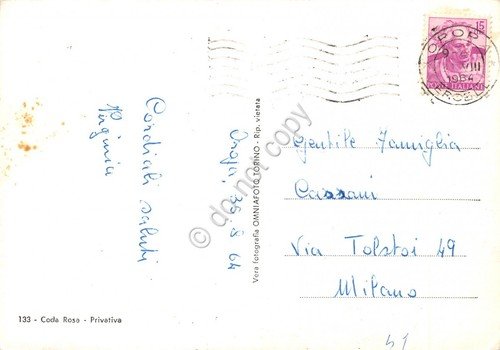 Cordiali saluti
Virginia
Oropa, 30-8-64
133 - Coda Rosa - Privativa
Vera fotografia OMNIAFOTO TORINO - Rip. vietata
do not copy
15
OROPA
1964
ITALIANE
Gentile Famiglia
Cassani
Via Tolstoi 49
Milano